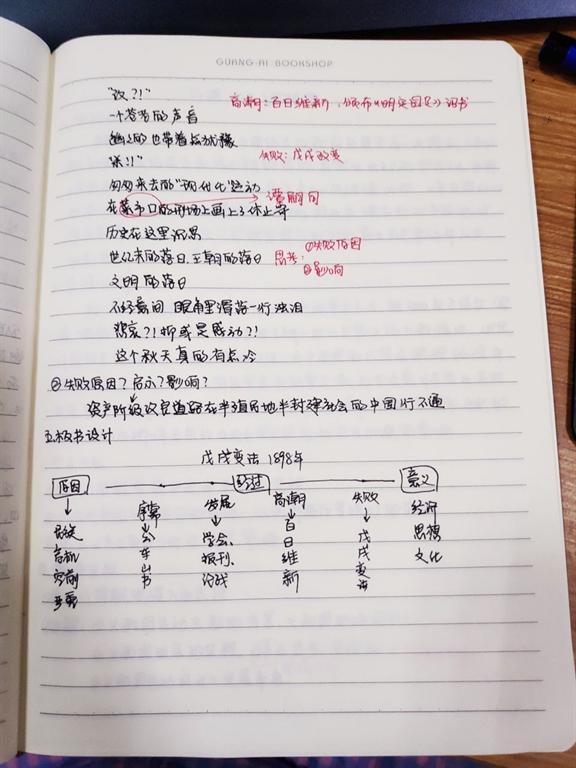 GUANG-AI BOOKSHOP
"改?!"
高潮:百日维新,颁布《明定国是》诏书
一个苍老的声音
幽幽的也带着点犹豫
"杀!!"
失败:戊戌政变
匆匆来去的"现代化"运动
谭嗣同
在菜市口的刑场上画上了休止符
历史在这里沉思
世纪末的落日,王朝的落日
思考:①失败原因
②影响
文明的落日
不经意间 眼角里滑落一行浊泪
悲哀?!抑或是感动?!
这个秋天真的有点冷
②失败原因?启示?影响?
资产阶级改良道路在半殖民地半封建社会的中国行不通
五.板书设计
戊戌变法 1898年
原因 经过 意义
序幕 发展 高潮 失败
民族危机空前严重
公车上书
学会、报刊、论战
百日维新
戊戌变
经济
思想
文化